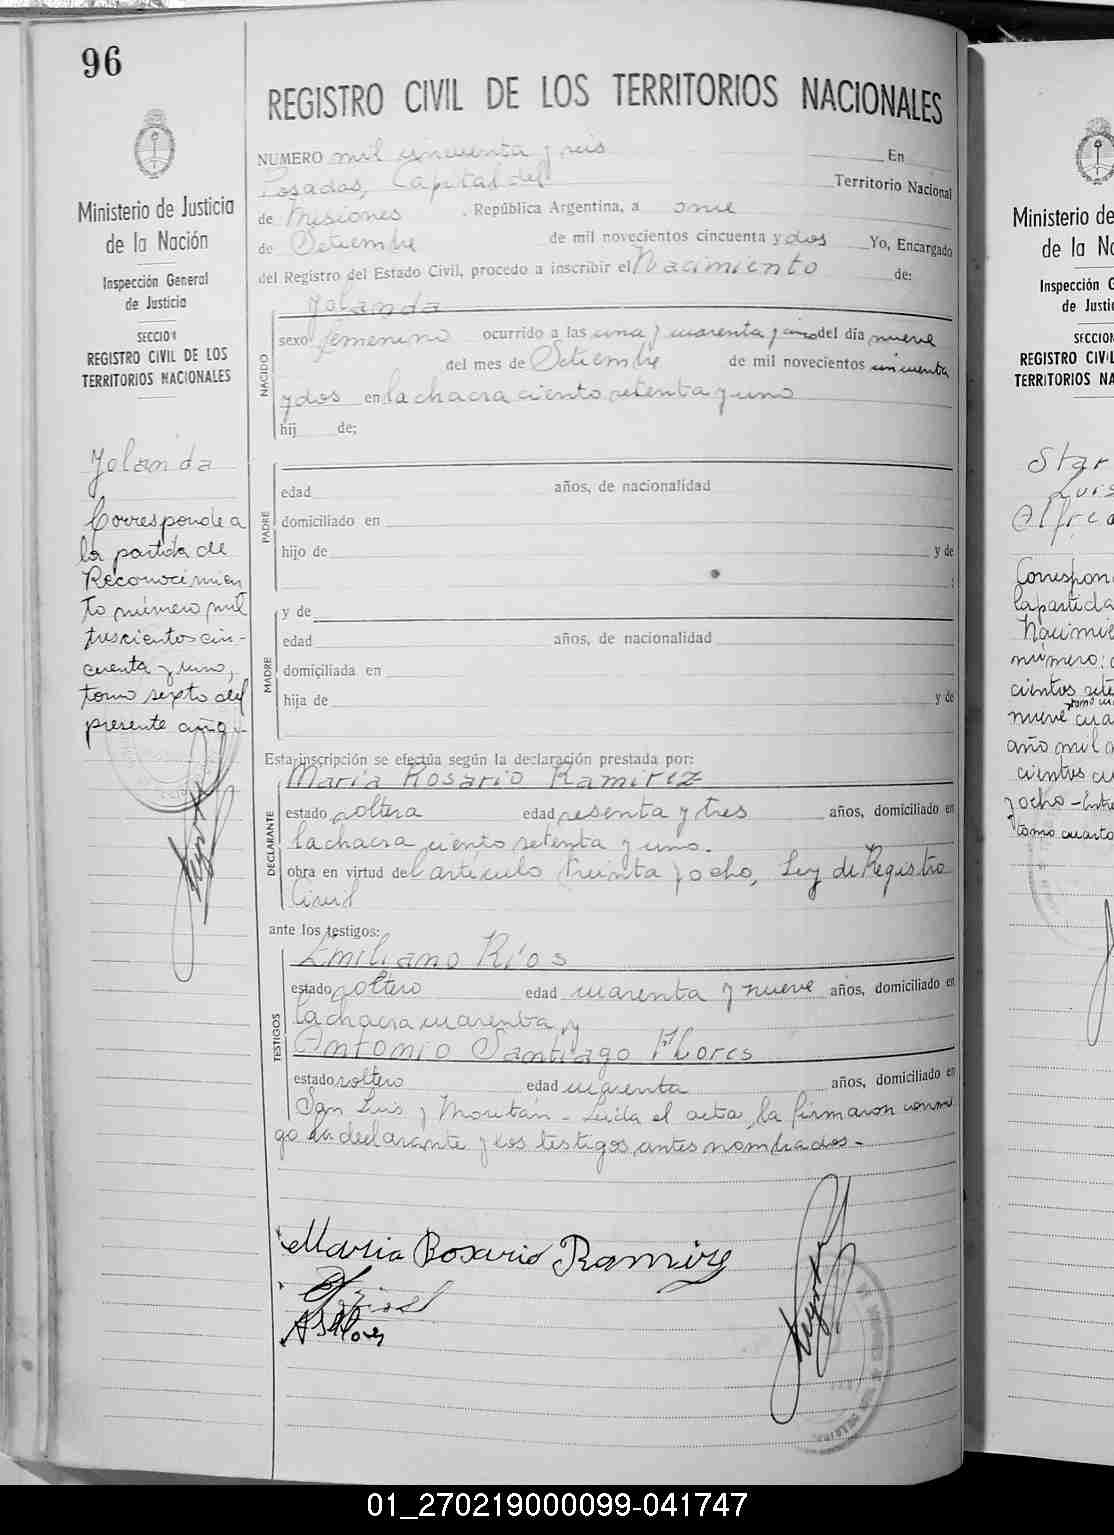 96
REGISTRO CIVIL DE LOS TERRITORIOS NACIONALES
Ministerio de Justicia
de la Nación
Inspección General
de Justicia
SECCION
REGISTRO CIVIL DE LOS
TERRITORIOS NACIONALES
Yolanda
Corresponde a
la partida de
Reconocimien
to número mil
trescientos cin-
cuenta y uno,
tomo sexto del
presente año.-
NUMERO mil cincuenta y seis En
Posadas, Capital del Territorio Nacional
de Misiones . República Argentina, a once
de Setiembre de mil novecientos cincuenta y dos Yo, Encargado
del Registro del Estado Civil, procedo a inscribir el Nacimiento de:
NACIDO
Yolanda
sexo femenino ocurrido a las una y cuarenta y cinco del día nueve
del mes de Setiembre de mil novecientos cincuenta
y dos en la chacra ciento setenta y uno
hij de;
PADRE
edad años, de nacionalidad
domiciliado en
hijo de y de
;
MADRE
y de
edad años, de nacionalidad
domiciliada en
hija de y de
Esta inscripción se efectúa según la declaración prestada por:
DECLARANTE
María Rosario Ramirez
estado soltera edad sesenta y tres años, domiciliado en
la chacra ciento setenta y uno.
obra en virtud del artículo treinta y ocho, Ley de Registro
Civil
ante los testigos:
TESTIGOS
Emiliano Ríos
estado soltero edad cuarenta y nueve años, domiciliado en
la chacra cuarenta y
Antonio Santiago Flores
estado soltero edad cuarenta años, domiciliado en
San Luis y - Leída el acta, la firmaron conmi
go la declarante y los testigos antes nombrados.-
Maria Rosario Ramirez
ASFlores
Ministerio de
de la Na
Inspección G
de Justic
SECCION
REGISTRO CIVIL
TERRITORIOS NA
Star
Luis
Alfred
Correspon
la partida
Nacimie
número:
cientos sete
nueve
año mil
cientos cu
y ocho - Entre
tomo cuarto
01_270219000099-041747